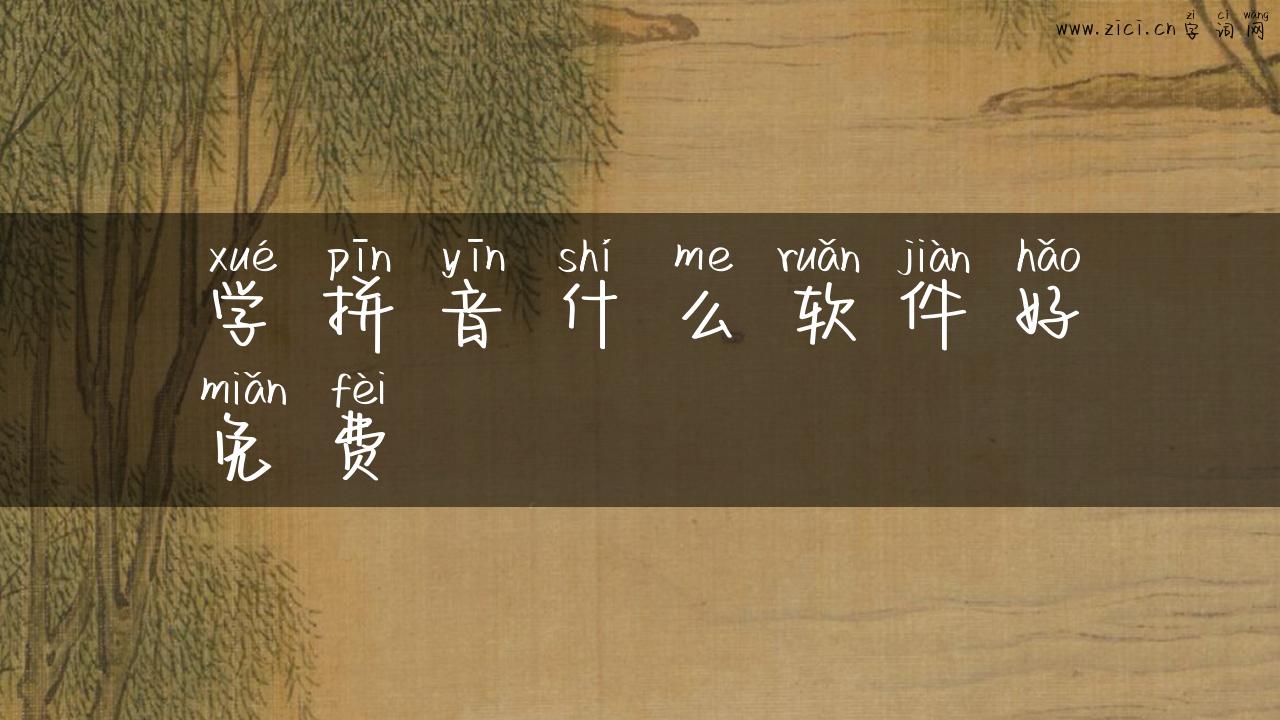 zì cí wǎng
www.zici.cn 字 词 网
xué pīn yīn shí me ruǎn jiàn hǎo
学 拼 音 什 么 软 件 好
miǎn fèi
免 费